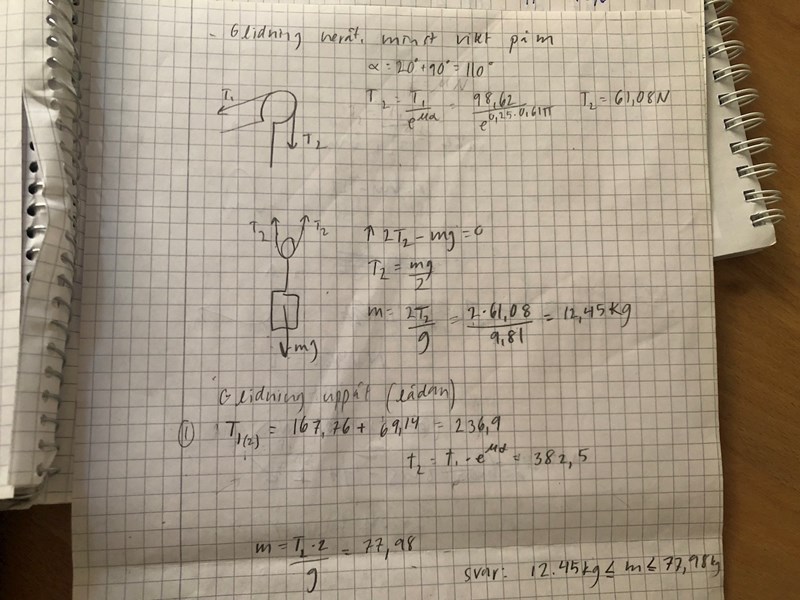 - Glidning neråt, minst vikt på m
α = 20° + 90° = 110°
T₁
T₂
T₂ = T₁/e^μα = 98,62/e^0,25·0,61π T₂ = 61,08N
T₂ T₂
mg
↑ 2T₂ - mg = 0
T₂ = mg/2
m = 2T₂/g = 2·61,08/9,81 = 12,45 kg
Glidning uppåt (lådan)
① T₁(2) = 167,76 + 69,14 = 236,9
t₂ = t₁ · e^μα = 382,5
m = T₂·2/g = 77,98
svar: 12.45kg ≤ m ≤ 77,98kg